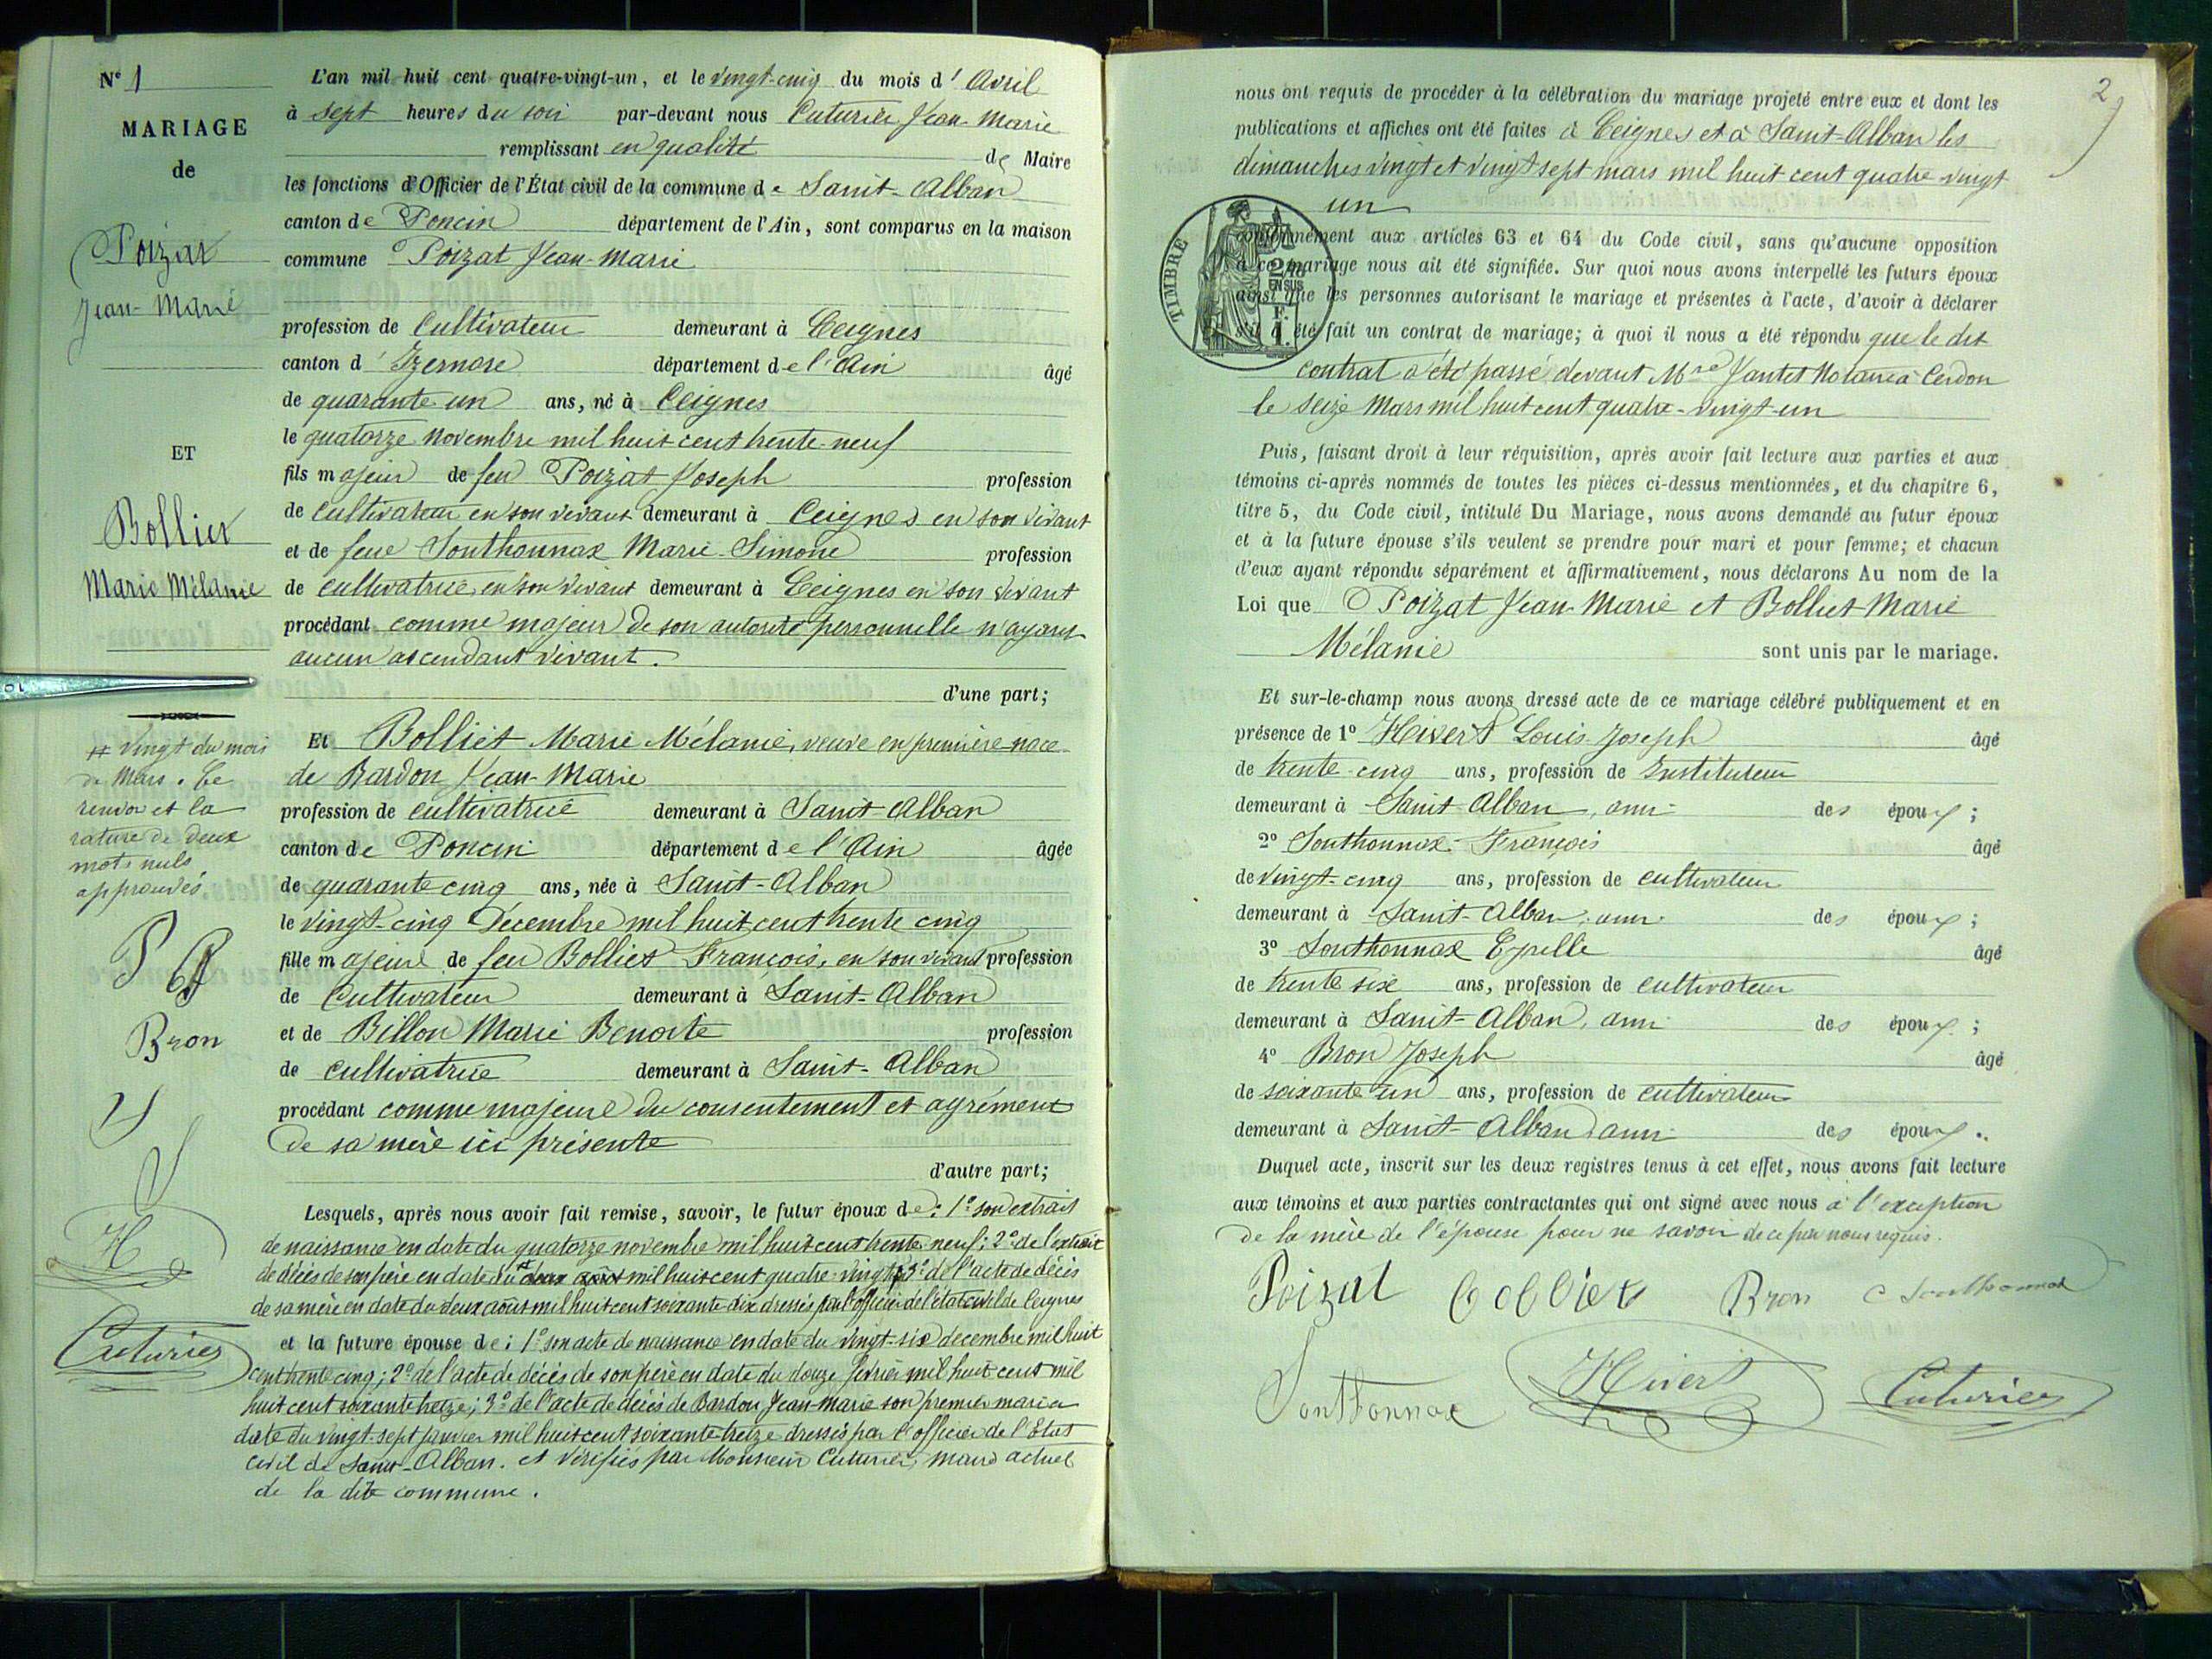 N° 1
MARIAGE
de
Poizat
Jean-Marie
ET
Bolliet
Marie Mélanie
# vingt du mois
de Mars. Ce
renvoi et la
rature de deux
mots nuls
approuvés.
Bron
H
Cuturier
L'an mil huit cent quatre-vingt-un, et le vingt-cinq du mois d'Avril
à sept heures du soir par-devant nous Cuturier Jean-Marie
remplissant en qualité de Maire
les fonctions d'Officier de l'État civil de la commune de Saint-Alban
canton de Poncin département de l'Ain, sont comparus en la maison
commune Poizat Jean-Marie
profession de Cultivateur demeurant à Ceignes
canton d'Izernore département de l'Ain âgé
de quarante un ans, né à Ceignes
le quatorze novembre mil huit cent trente-neuf
fils majeur de feu Poizat Joseph profession
de cultivateur en son vivant demeurant à Ceignes en son vivant
et de feue Southonnax Marie-Simone profession
de cultivatrice en son vivant demeurant à Ceignes en son vivant
procédant comme majeur de son autorité personnelle n'ayant
aucun ascendant vivant.
d'une part;
Et Bolliet Marie Mélanie, veuve en première noce
de Bardon Jean-Marie
profession de cultivatrice demeurant à Saint-Alban
canton de Poncin département de l'Ain âgée
de quarante cinq ans, née à Saint-Alban
le vingt-cinq Décembre mil huit cent trente cinq
fille majeure de feu Bolliet François, en son vivant profession
de Cultivateur demeurant à Saint-Alban
et de Billon Marie Benoite profession
de cultivatrice demeurant à Saint-Alban
procédant comme majeure du consentement et agrément
de sa mère ici présente
d'autre part;
Lesquels, après nous avoir fait remise, savoir, le futur époux de: 1° son extrait
de naissance en date du quatorze novembre mil huit cent trente neuf; 2° de l'extrait
de décès de son père en date du # deux août mil huit cent quatre-vingt; 3° de l'acte de décès
de sa mère en date du deux août mil huit cent soixante-dix dressés par l'officier de l'état civil de Ceignes
et la future épouse de: 1° son acte de naissance en date du vingt-six décembre mil huit
cent trente cinq; 2° de l'acte de décès de son père en date du douze février mil huit cent mil
huit cent soixante treize; 3° de l'acte de décès de Bardon Jean-Marie son premier mari en
date du vingt-sept janvier mil huit cent soixante-treize dressés par l'officier de l'Etat
civil de Saint-Alban. et vérifiés par Monsieur Cuturier, maire actuel
de la dite commune.
2
nous ont requis de procéder à la célébration du mariage projeté entre eux et dont les
publications et affiches ont été faites à Ceignes et à Saint-Alban les
dimanches vingt et vingt sept mars mil huit cent quatre vingt
un
TIMBRE
2/10
EN SUS
F.
1.
conformément aux articles 63 et 64 du Code civil, sans qu'aucune opposition
à ce mariage nous ait été signifiée. Sur quoi nous avons interpellé les futurs époux
ainsi que les personnes autorisant le mariage et présentes à l'acte, d'avoir à déclarer
s'il a été fait un contrat de mariage; à quoi il nous a été répondu que le dit
contrat a été passé devant Mre Jantet Notaire à Cerdon
le seize Mars mil huit cent quatre-vingt-un
Puis, faisant droit à leur réquisition, après avoir fait lecture aux parties et aux
témoins ci-après nommés de toutes les pièces ci-dessus mentionnées, et du chapitre 6,
titre 5, du Code civil, intitulé Du Mariage, nous avons demandé au futur époux
et à la future épouse s'ils veulent se prendre pour mari et pour femme; et chacun
d'eux ayant répondu séparément et affirmativement, nous déclarons Au nom de la
Loi que Poizat Jean-Marie et Bolliet Marie
Mélanie sont unis par le mariage.
Et sur-le-champ nous avons dressé acte de ce mariage célébré publiquement et en
présence de 1° Hivert Louis Joseph âgé
de trente-cinq ans, profession de Instituteur
demeurant à Saint-Alban, ami des époux;
2° Southonnax François âgé
de vingt-cinq ans, profession de cultivateur
demeurant à Saint-Alban, ami des époux;
3° Southonnax âgé
de trente six ans, profession de cultivateur
demeurant à Saint-Alban, ami des époux;
4° Bron Joseph âgé
de soixante un ans, profession de cultivateur
demeurant à Saint-Alban ami des époux.
Duquel acte, inscrit sur les deux registres tenus à cet effet, nous avons fait lecture
aux témoins et aux parties contractantes qui ont signé avec nous à l'exception
de la mère de l'épouse pour ne savoir de ce par nous requis.
Poizat Bolliet Bron Southonnax
Southonnax Hivert Cuturier